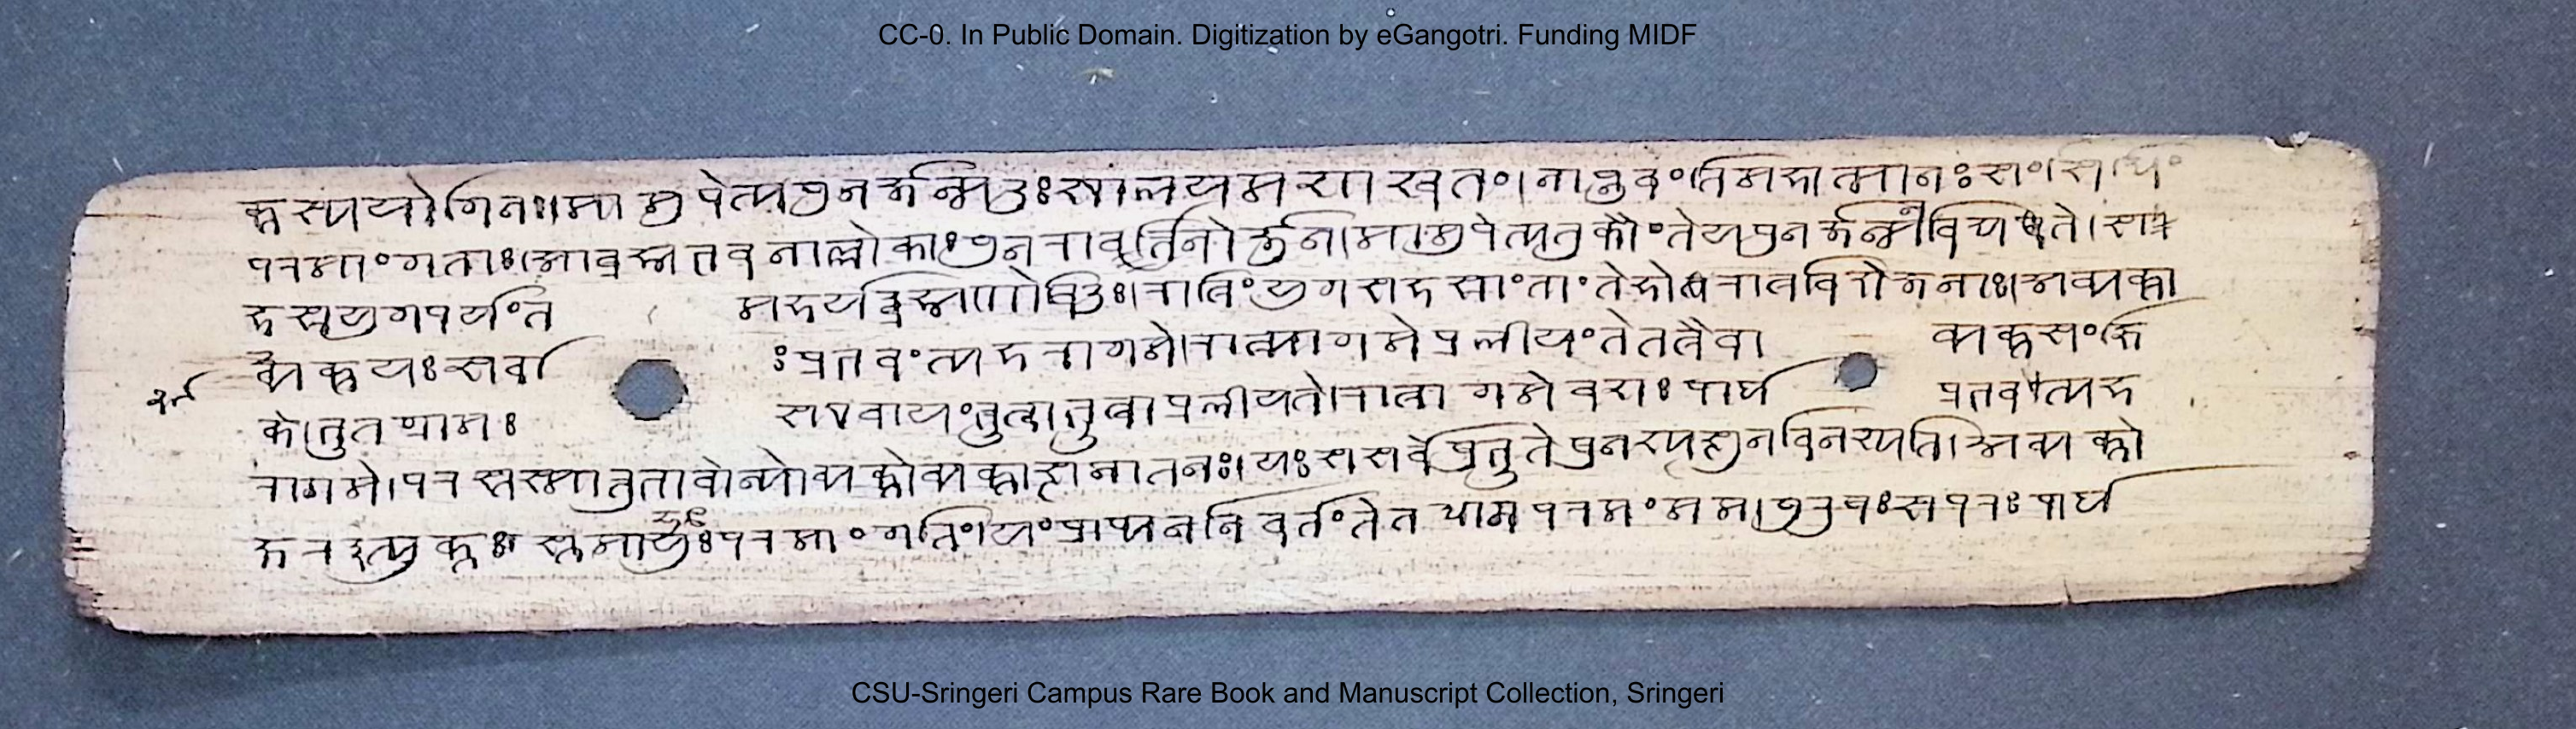 CC-0. In Public Domain. Digitization by eGangotri. Funding MIDF
क्तस्य योगिनः। मामुपेत्य पुनर्जन्म दुःखालयमशाश्वतं। नाप्नुवंति महात्मानः संसिद्धिं
परमां गताः। आब्रह्मभुवनाल्लोकाः पुनरावर्तिनोर्जुन। मामुपेत्य तु कौंतेय पुनर्जन्म न विद्यते। सह
स्रयुगपर्यंत महर्यद्ब्रह्मणो विदुः। रात्रिं युगसहस्रांतां तेहोरात्रविदो जनाः। अव्यक्ता
व्यक्तयः सर्वाः प्रभवंत्यहरागमे। रात्र्यागमे प्रलीयंते तत्रैवाव्यक्तसंज्ञ
के। भूतग्रामः स एवायं भूत्वा भूत्वा प्रलीयते। रात्र्यागमेवशः पार्थ प्रभवत्यह
रागमे। परस्तस्मात्तु भावोन्योव्यक्तोव्यक्तात्सनातनः। यः स सर्वेषु भूतेषु नश्यत्सु न विनश्यति। अव्यक्तो
क्षर इत्युक्तस्तमाहुः परमां गतिं। यं प्राप्य न निवर्तंते तद्धाम परमं मम। पुरुषः स परः पार्थ
CSU-Sringeri Campus Rare Book and Manuscript Collection, Sringeri